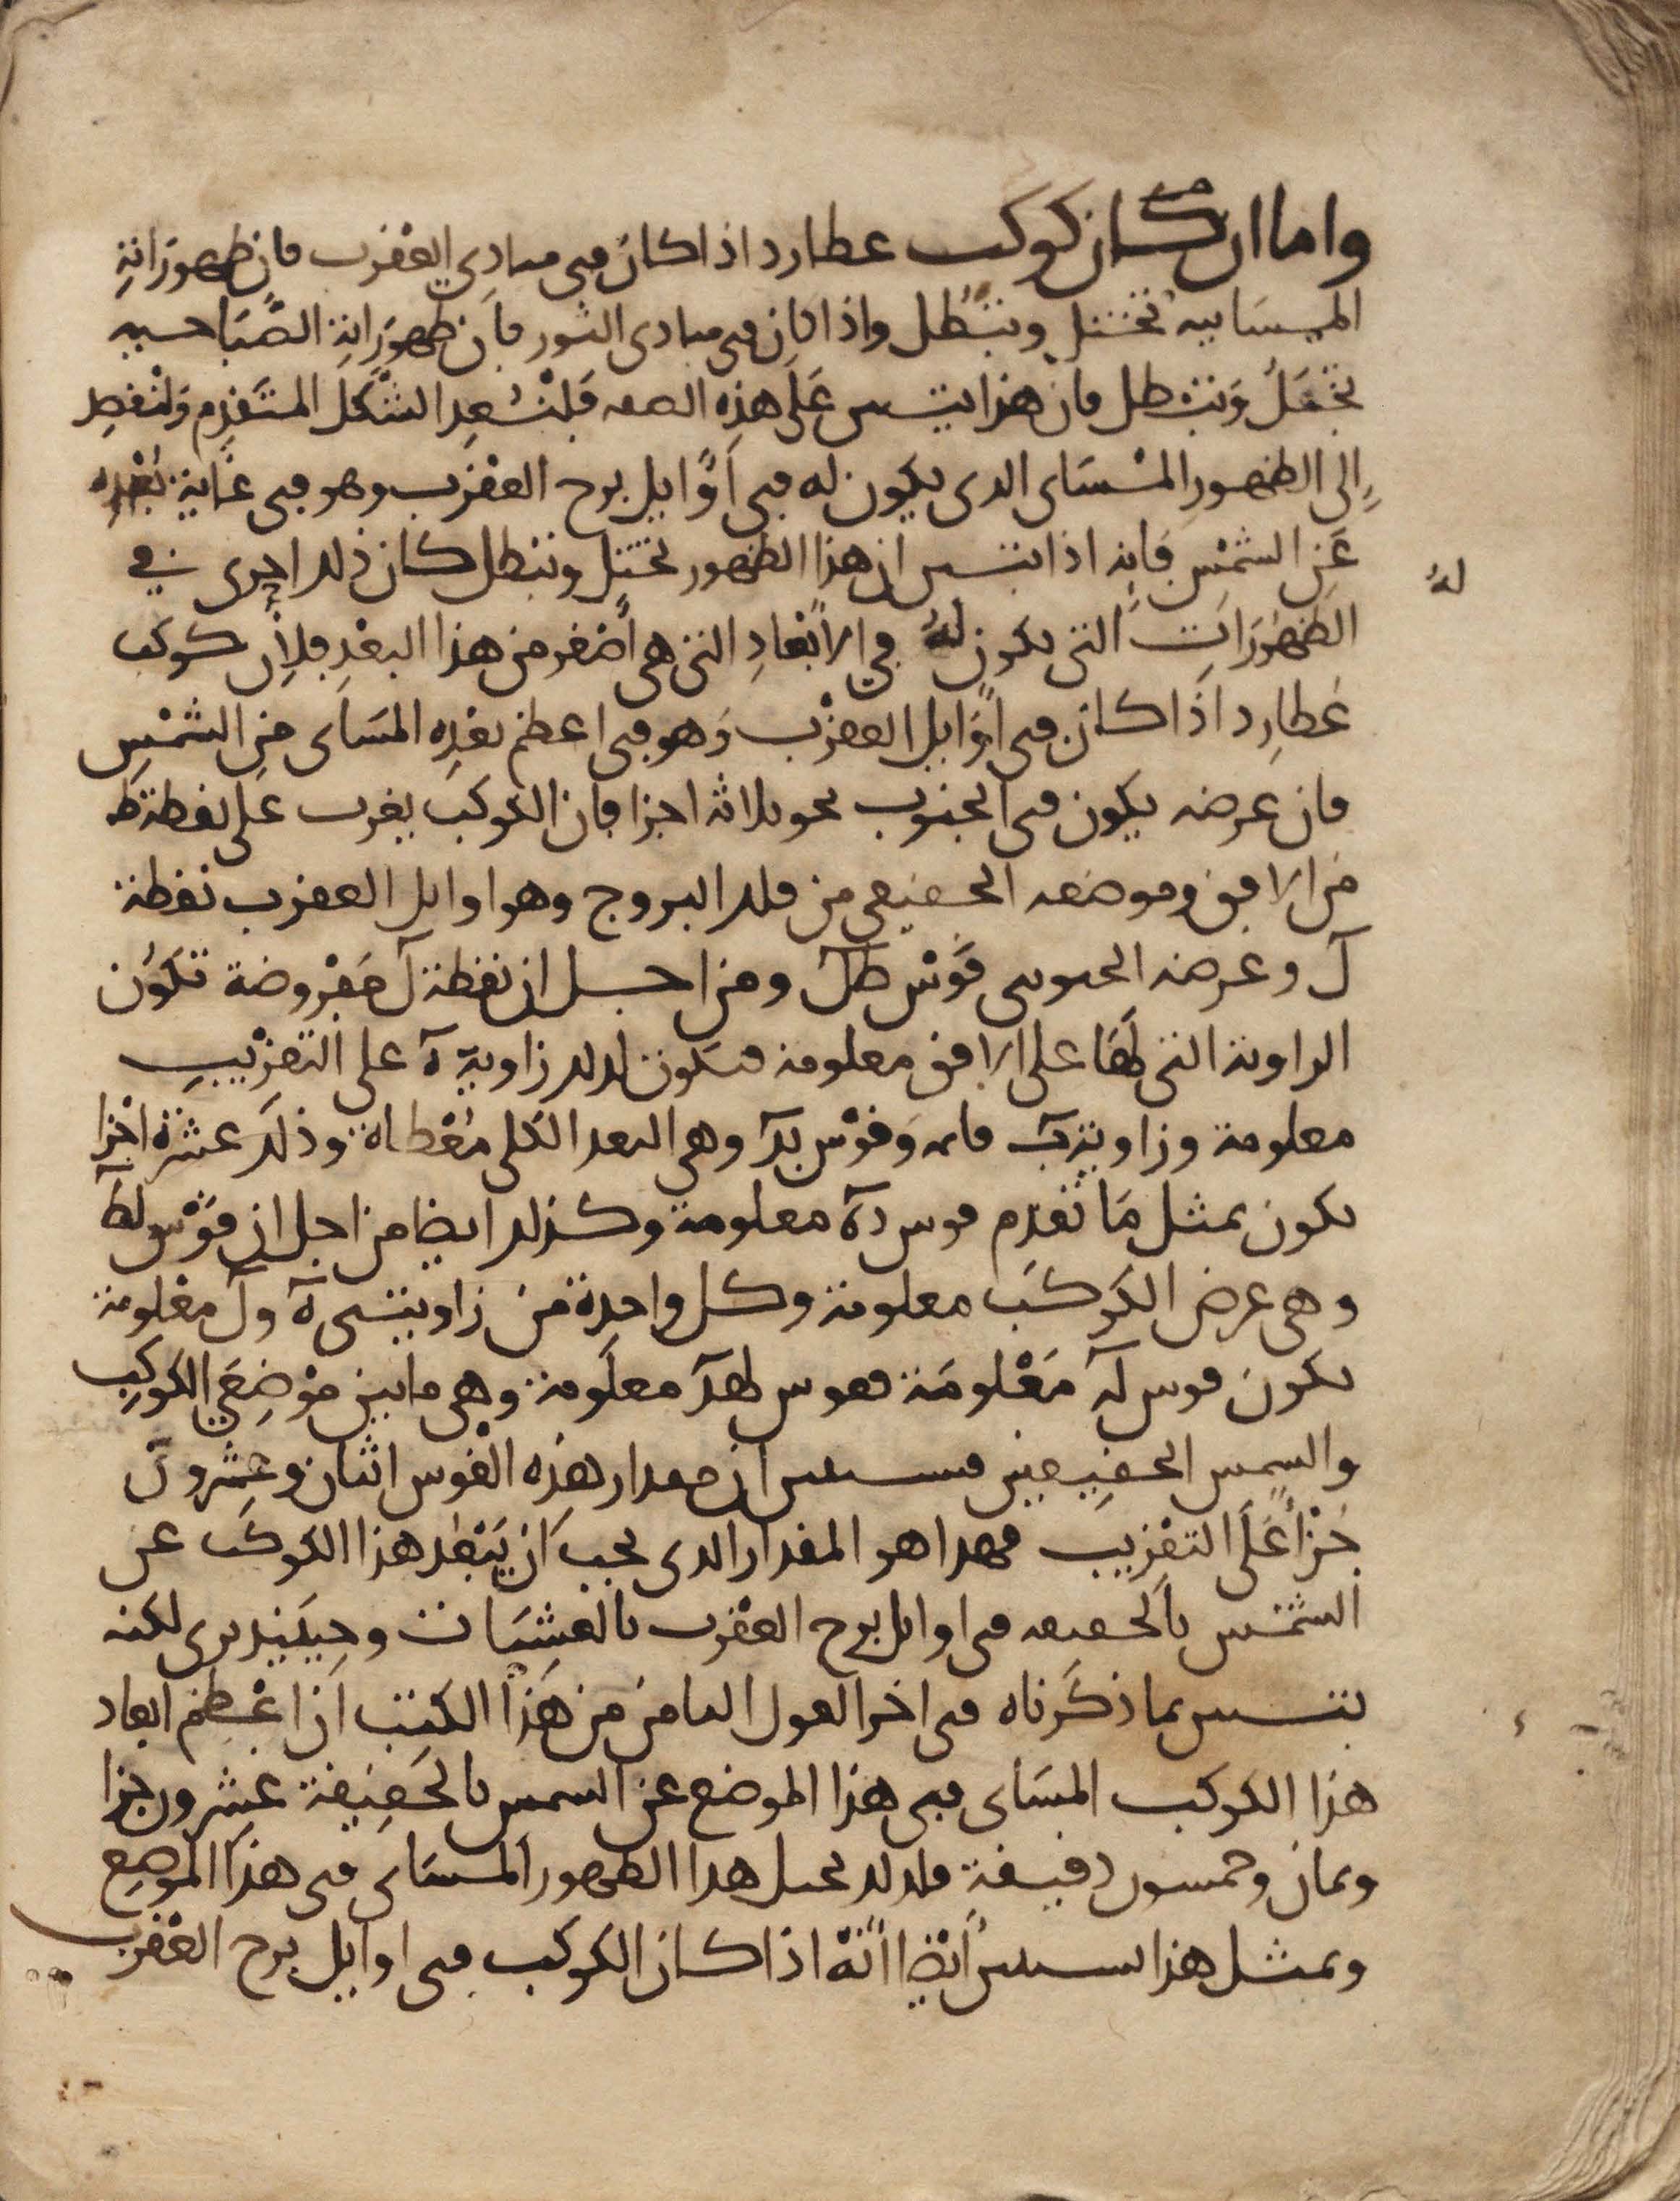 واما ان كان كوكب عطارد اذا كان في مبادي العقرب فان ظهوراته
المسايية تختل وتبطل واذا كان في مبادى الثور فان ظهوراته الصباحيه
تختل وتبطل فان هذا يتبين على هذه الصفه فلنعد الشكل المتقدم ولنقصد
الى الظهور المساى الدى يكون له في اوايل برج العقرب وهو في غاية بعده
عن الشمس فانه اذا تبين ان هذا الظهور تختل وتبطل كان ذلك احرى في
الظهورات التي تكون له في الابعاد التي هي اصغر من هذا البعد فلان كوكب
عطارد اذا كان في اوايل العقرب وهو في اعظم بعده المساى من الشمس
فان عرضه يكون في الجنوب نحو ثلاثة اجزا فان الكوكب يغرب على نقطة ط
من الافق وموضعه الحقيقي من فلك البروج وهو اوايل العقرب نقطة
ل وعرضه الجنوبى قوس طل ومن اجل ان نقطة ل مفروضة تكون
الزاوية التي لها على الافق معلومة فتكون لذلك زاوية ه على التقريب
معلومة وزاوية ب قايمه وقوس بد وهي البعد الكلى معطاة وذلك عشرة اجزا
تكون بمثل ما تقدم قوس ده معلومة وكذلك ايضا من اجل ان قوس لط
وهي عرض الكوكب معلومة وكل واحدة من زاويتى ه ول معلومة
تكون قوس له معلومة فقوس لهد معلومة وهي ما بين موضعي الكوكب
والشمس الحقيقيين فسيتبين ان مقدار هذه القوس اثنان وعشرون
جزأ على التقريب فهذا هو المقدار الدى يجب ان يبعد هذا الكوكب عن
الشمس بالحقيقه في اوايل برج العقرب بالعشيات وحينيذ يرى لكنه
يتبين بما ذكرناه في اخر القول الثامن من هذا الكتب ان اعظم ابعاد
هذا الكوكب المساى في هذا الموضع عن الشمس بالحقيقة عشرون جزا
وثمان وخمسون دقيقة فلذلك تختل هذا الظهور المساى في هذا الموضع
وبمثل هذا سيتبين ايضا انه اذا كان الكوكب في اوايل برج العقرب
له